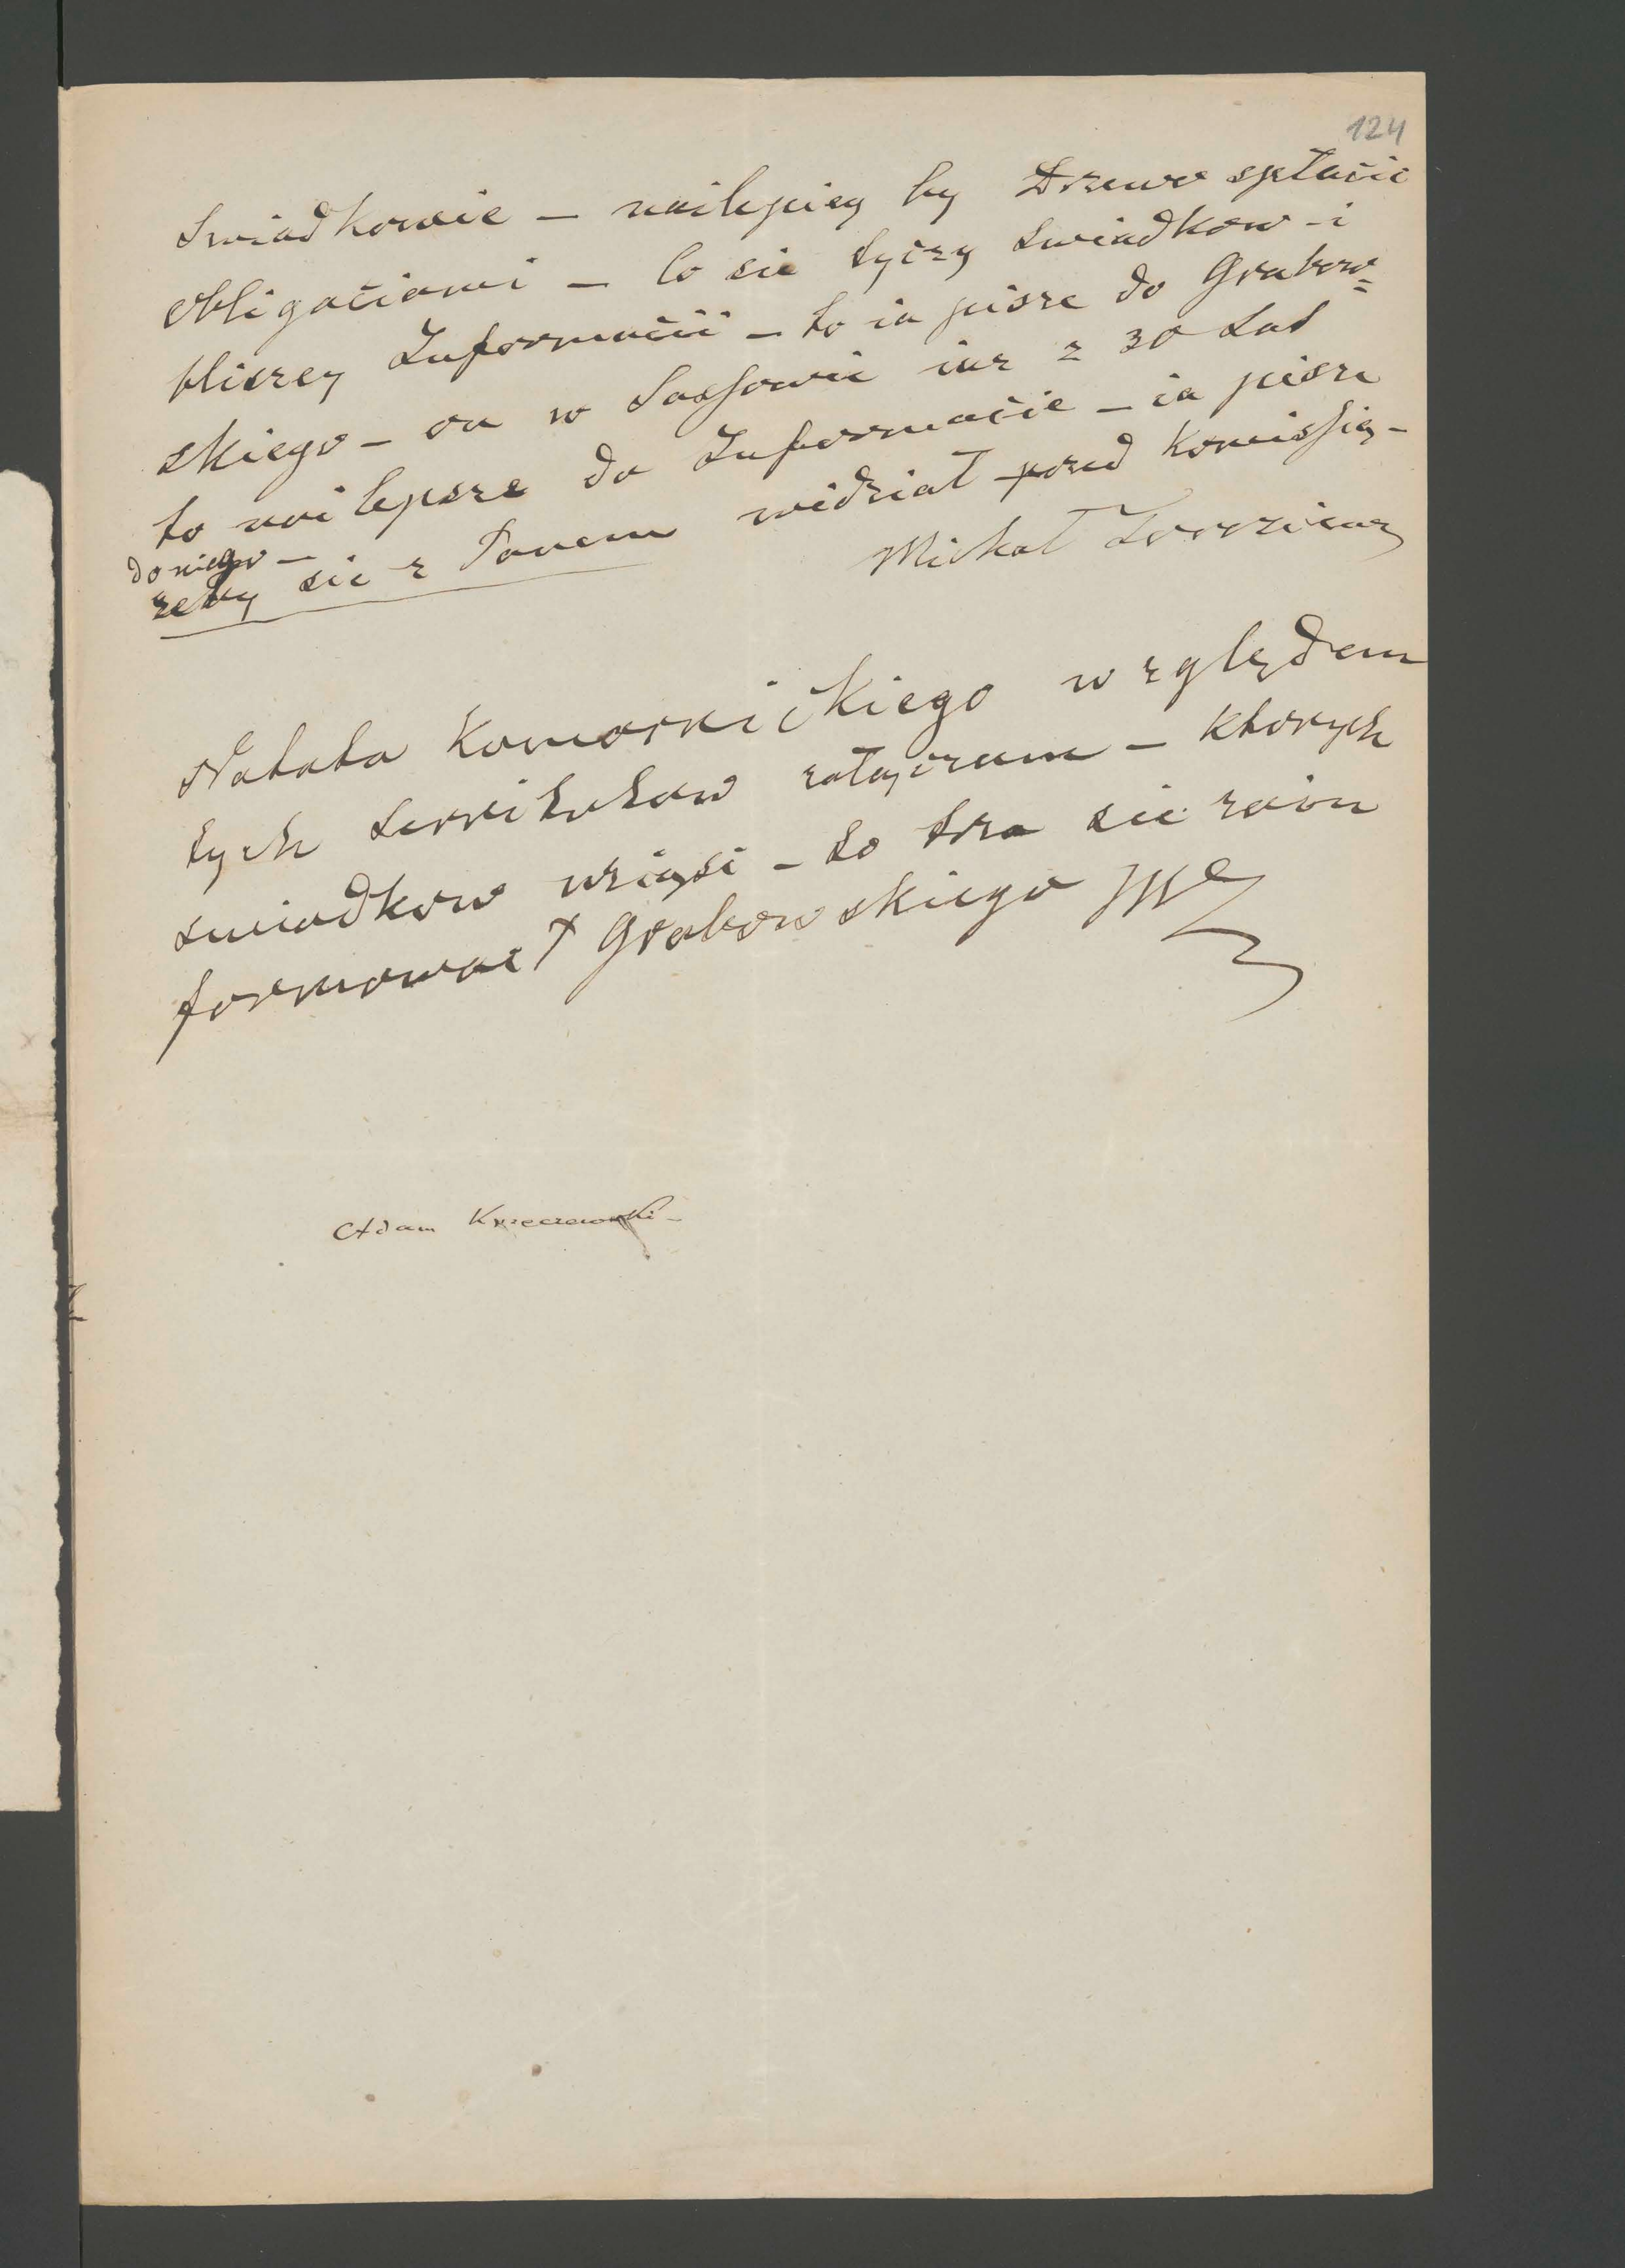 124
Swiadkowie – nailepiey by Drzewo spłacić
obligaciami – co sie tyczy swiadkow – i
bliszey Informacii – to ia pisze do Grabow=
skiego – on w Sassowie iuz z 30 Lat
to nailepsze da Informacie – ia pisze
do niego –
zeby sie z Panem widział przed Komissią –
Michał
Notata Komornickiego względem
tych serwitutow załączam – ktorych
swiadkow wziąść – to trza sie zain
formować Grabowskiego
Adam